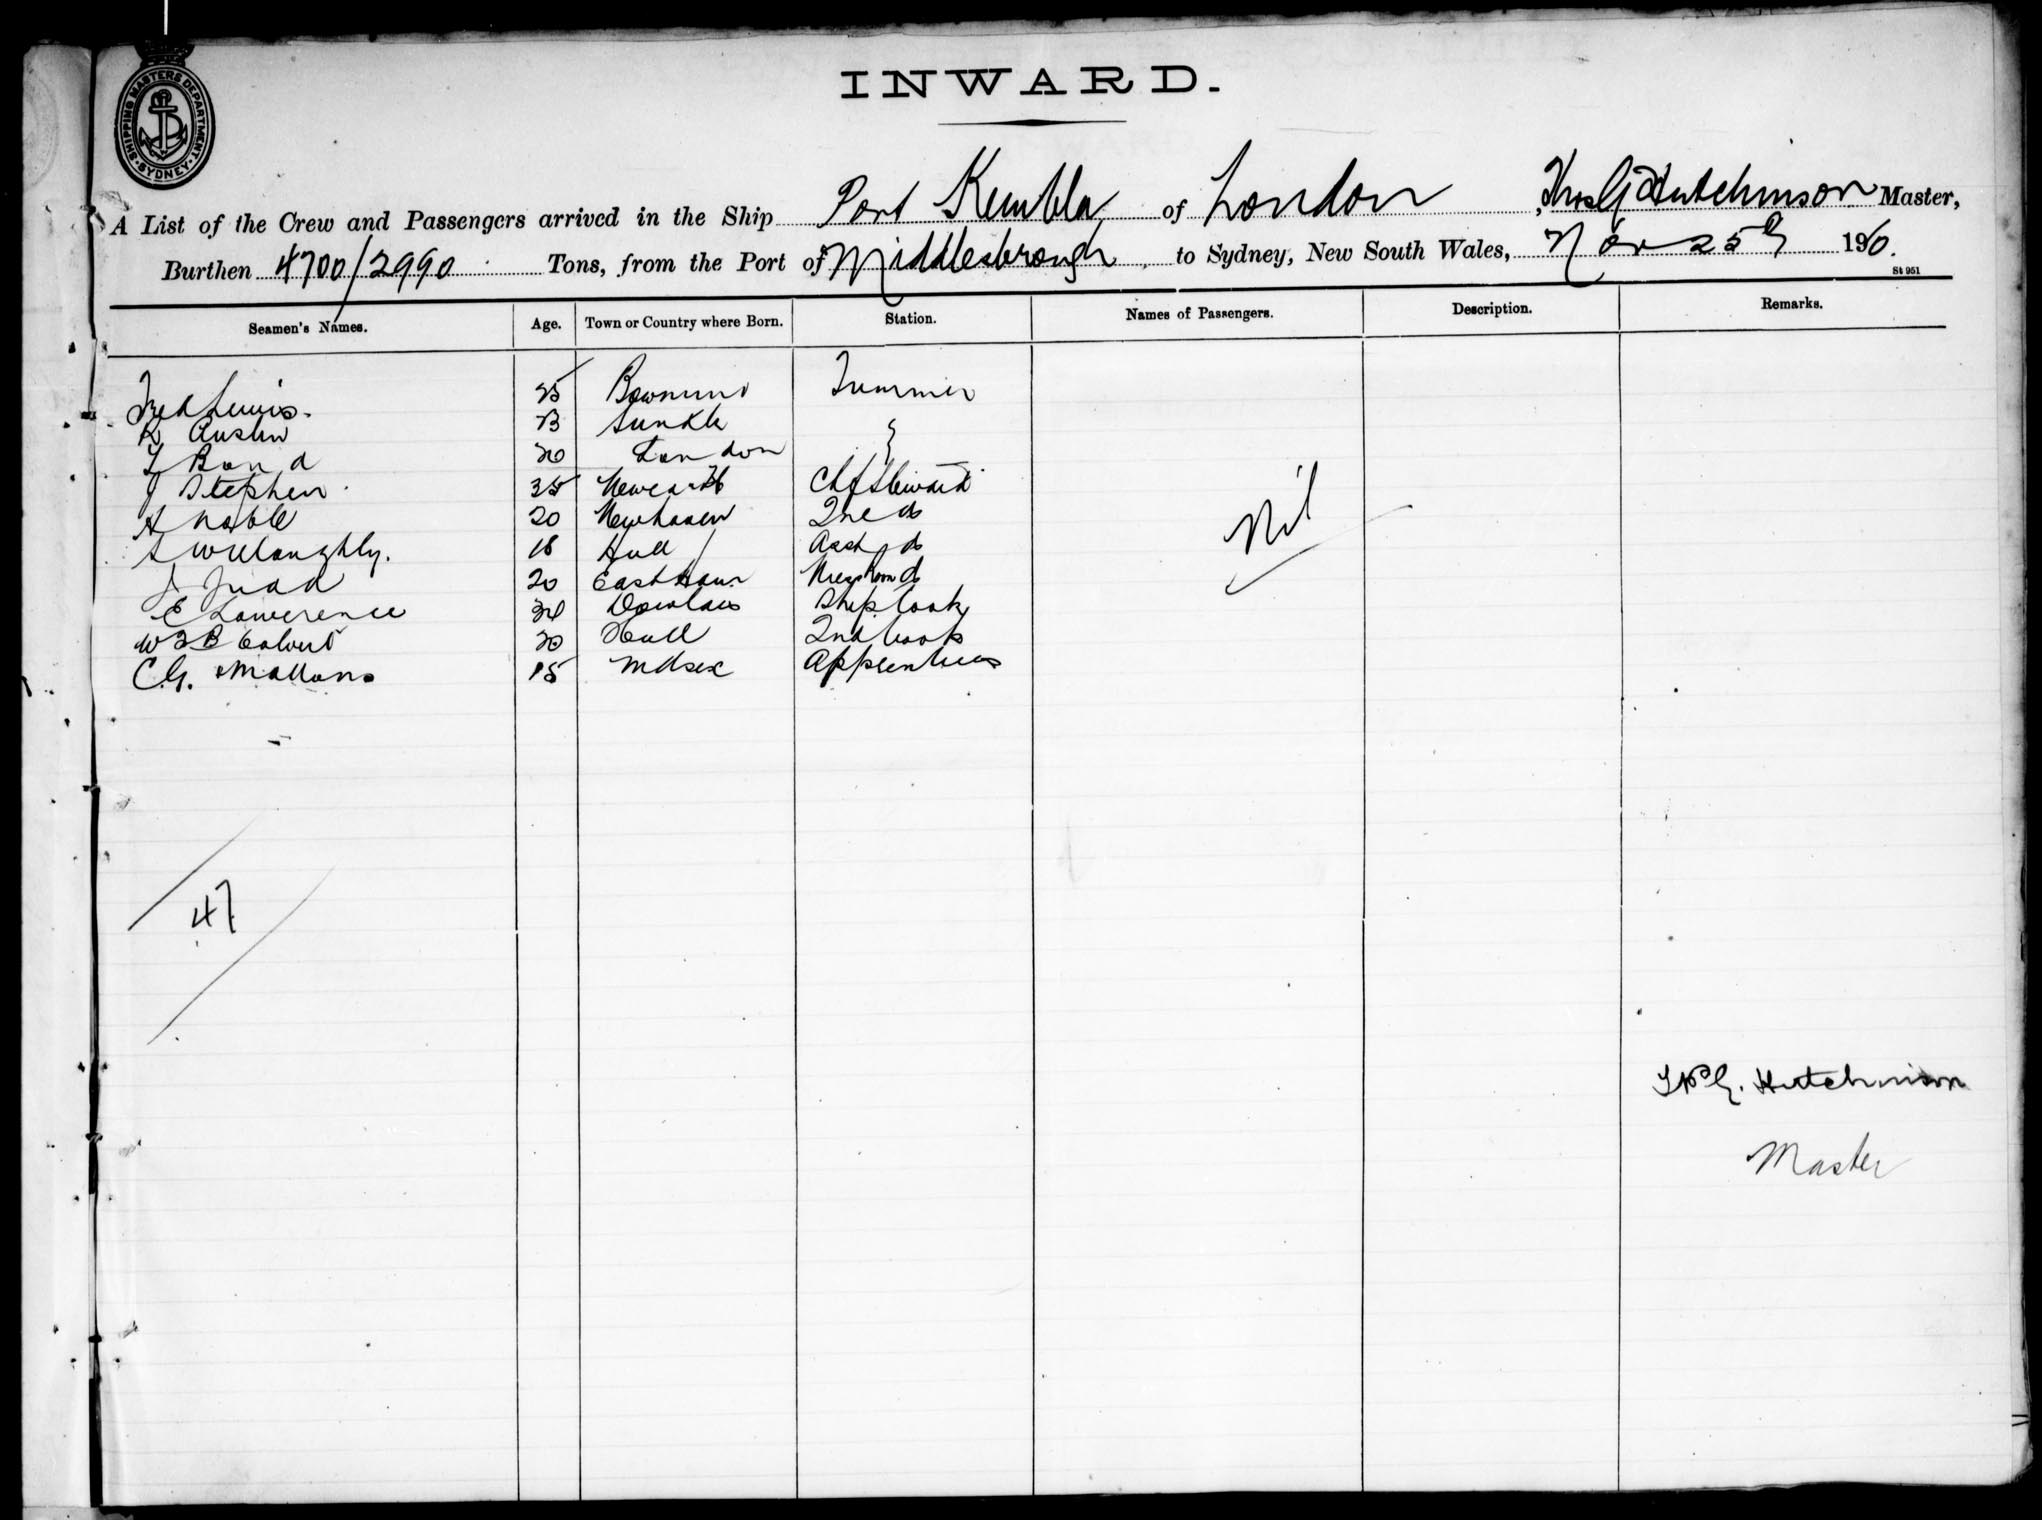 SHIPPING MASTERS DEPARTMENT. SYDNEY
INWARD.
A List of the Crew and Passengers arrived in the Ship Port Kembla of London Thos G Hutchinson Master,
Burthen 4700/2990 Tons, from the Port of Middlesbrough to Sydney, New South Wales, Nov 25th 1910.
St 951
Seamen's Names. Age. Town or Country where Born. Station. Names of Passengers. Description. Remarks.
Fred Lewis. 25 Trimmer
R Austin 23
T Bond 20 London
J Stephen 35 Newcastle Chf Steward
A Noble 20 Newhaven 2nd do
S Willoughby. 18 Hull Asst do
J Judd 20 East Ham Messroom do
E Lawerence Dowlais Ships Cook
W T B Calvert 20 Hull 2nd Cook
C.G. 15 Mdsex Apprentices
Nil
47
Thos G. Hutchinson
Master